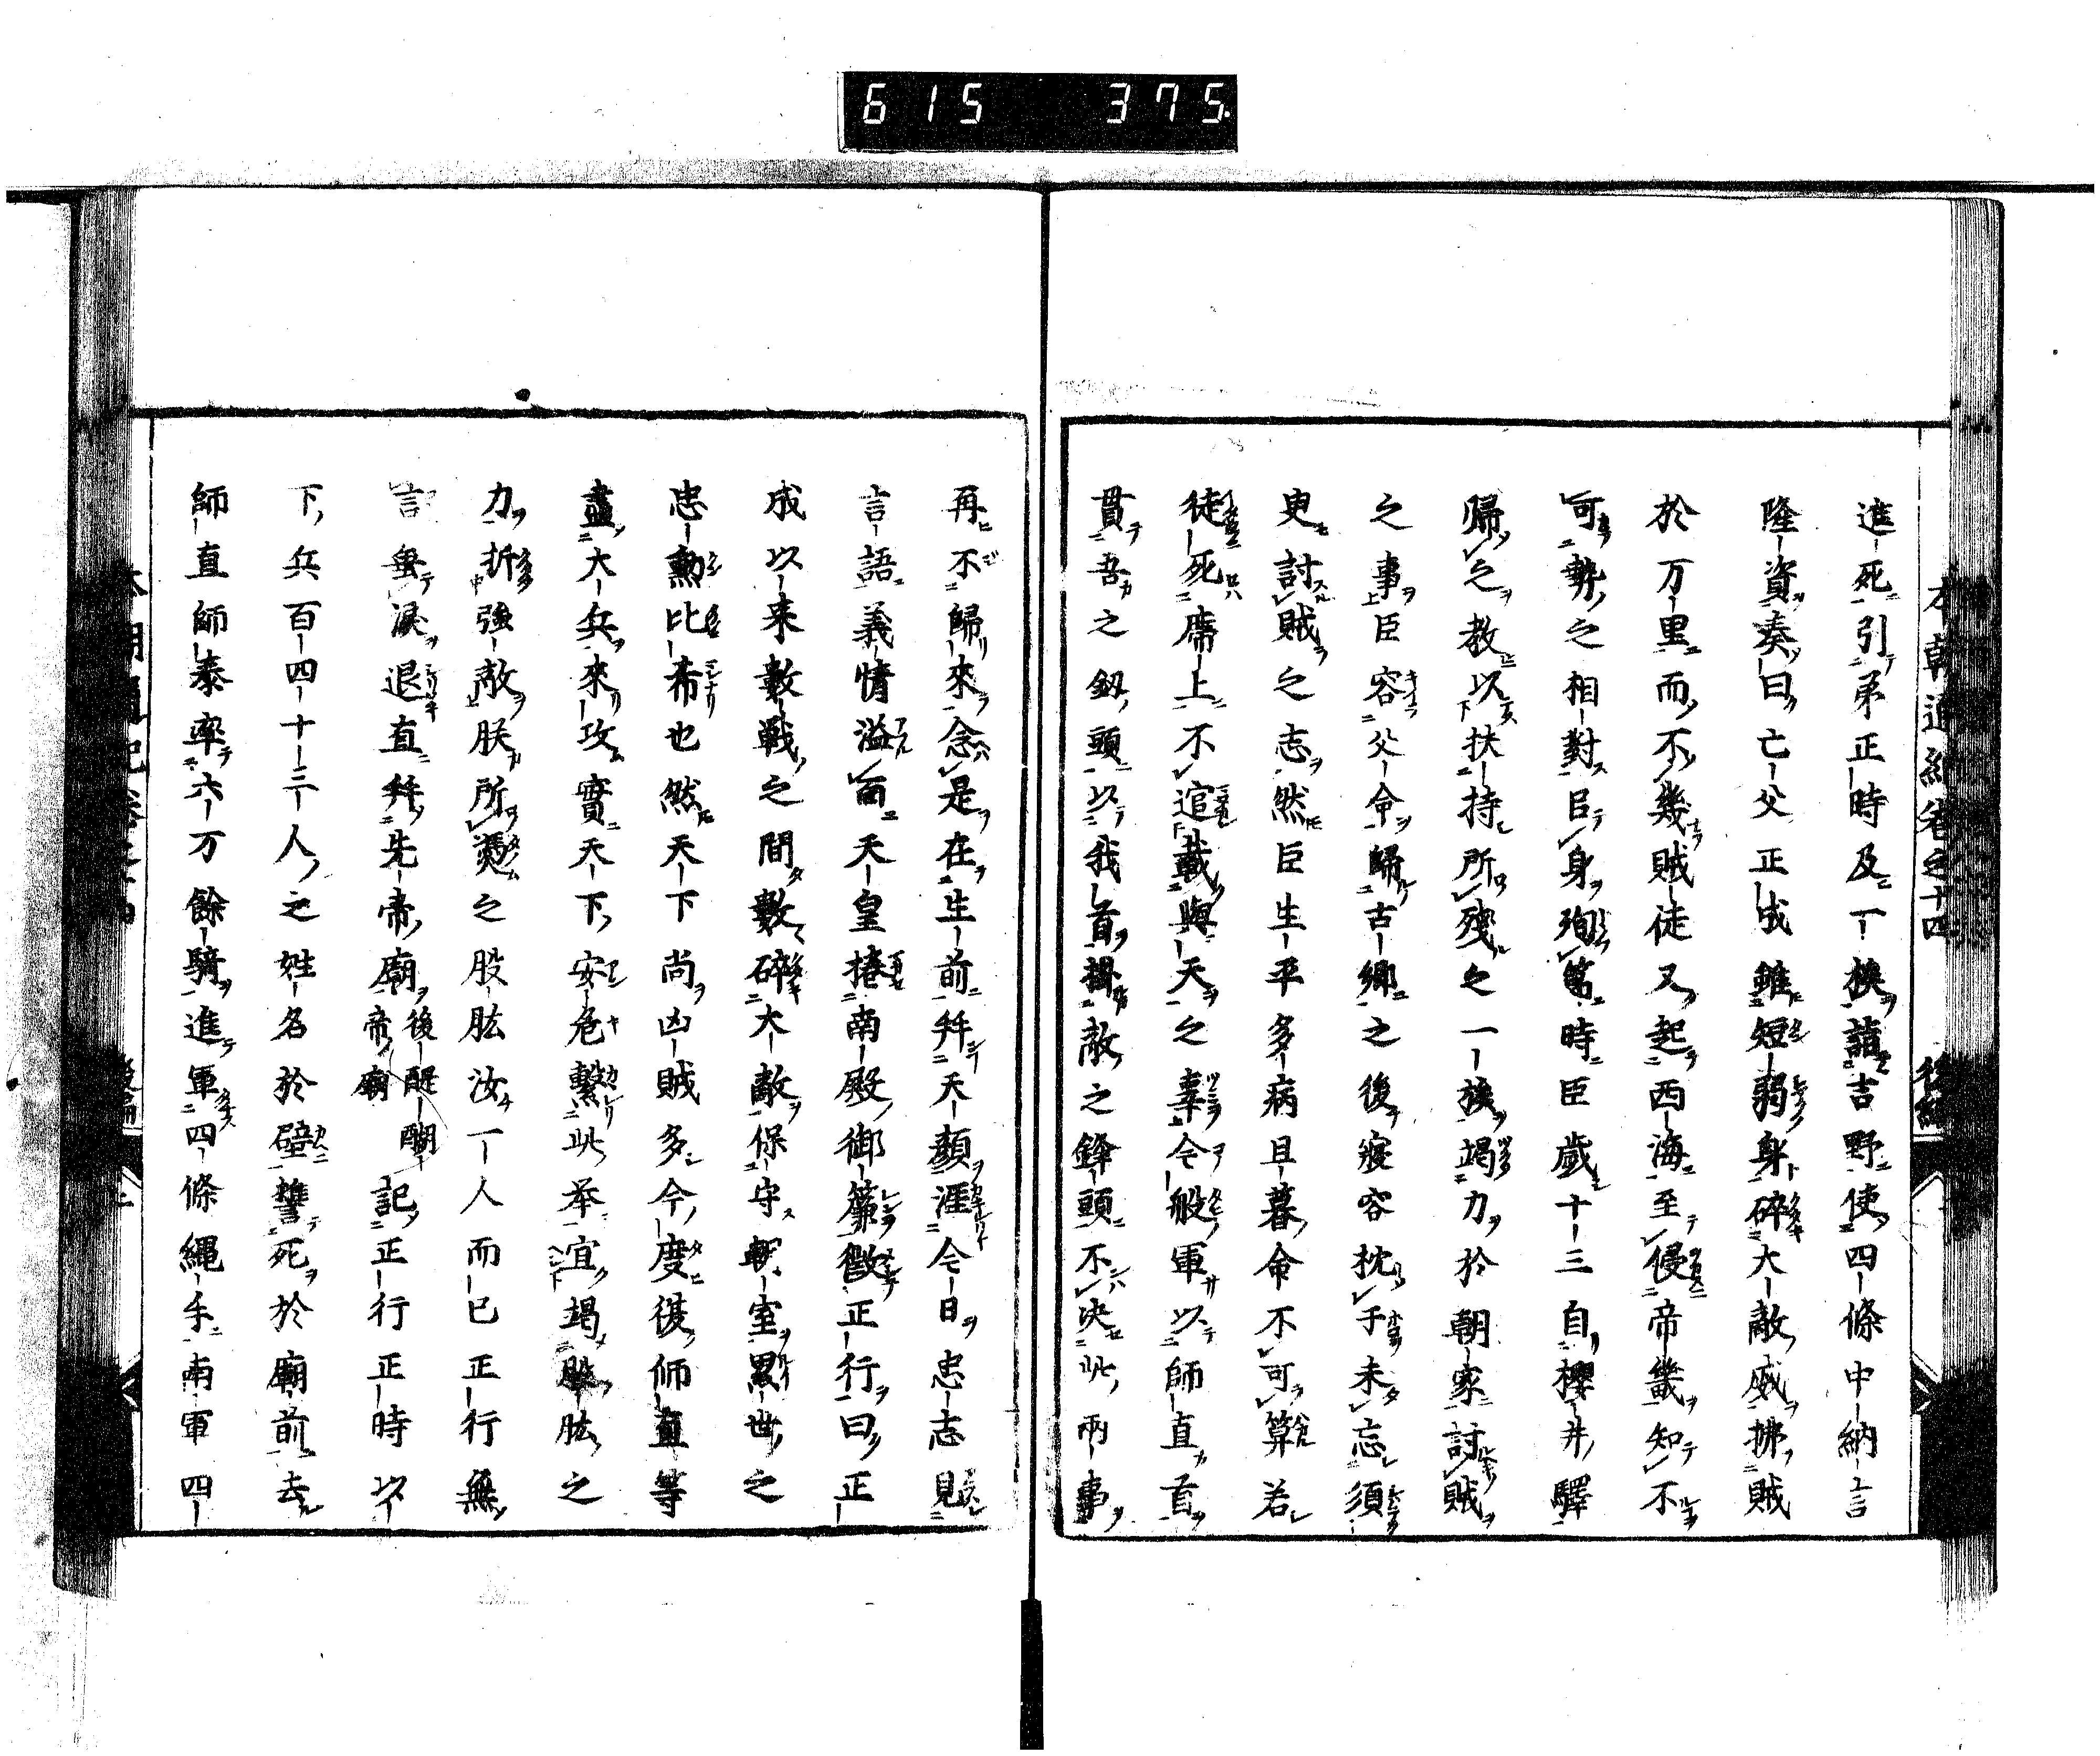 615 375
本朝通紀卷之十四 後編
進死引弟正時及一族詣吉野使四條中納言
隆資奏曰亡父正成雖短弱身碎大敵威拂賊
於万里而不幾賊徒又起西海至侵帝畿知不
可勢之相對臣身殉篤時臣歲十三自櫻井驛
歸之教以扶持所殘之一族竭力於朝家討賊
之事臣容父命歸古鄉之後寢容枕于未忘須
臾討賊之志然臣生平多病且暮命不可算若
徒死席上不逭戴與天之辜今般軍以師直首
貫吾之釼頭以我首掛敵之鋒頭不決此兩事
再不歸來念是在生前拜天顏涯今日忠志見
言語義情溢面天皇捲南殿御簾徴正行曰正
成以來數戰之間數碎大敵保守朝室累世之
忠勳比希也然天下尚凶賊多今度復師直等
盡大兵來攻實天下安危繫此举宜竭股肱之
力折強敵朕所憑之股肱汝一人而已正行無
言垂淚退直拜先帝廟後醍醐帝廟記正行正時以
下兵百四十三人之姓名於壁誓死於廟前去
師直師泰率六万餘騎進軍四條繩手南軍四